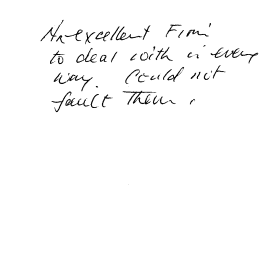 An excellent Firm
to deal with in every
way. Could not
fault Them.